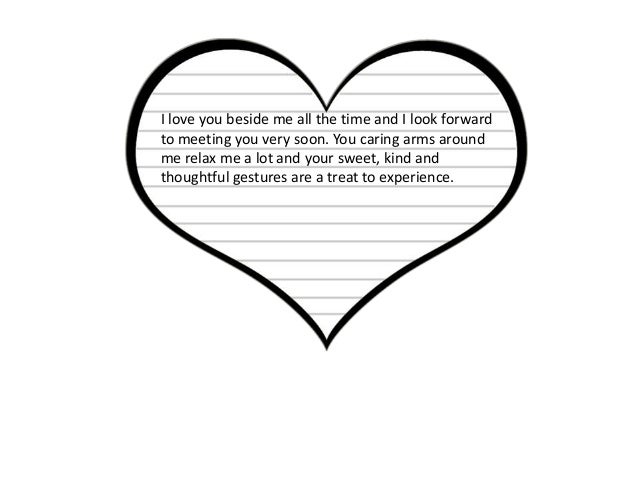 I love you beside me all the time and I look forward
to meeting you very soon. You caring arms around
me relax me a lot and your sweet, kind and
thoughtful gestures are a treat to experience.